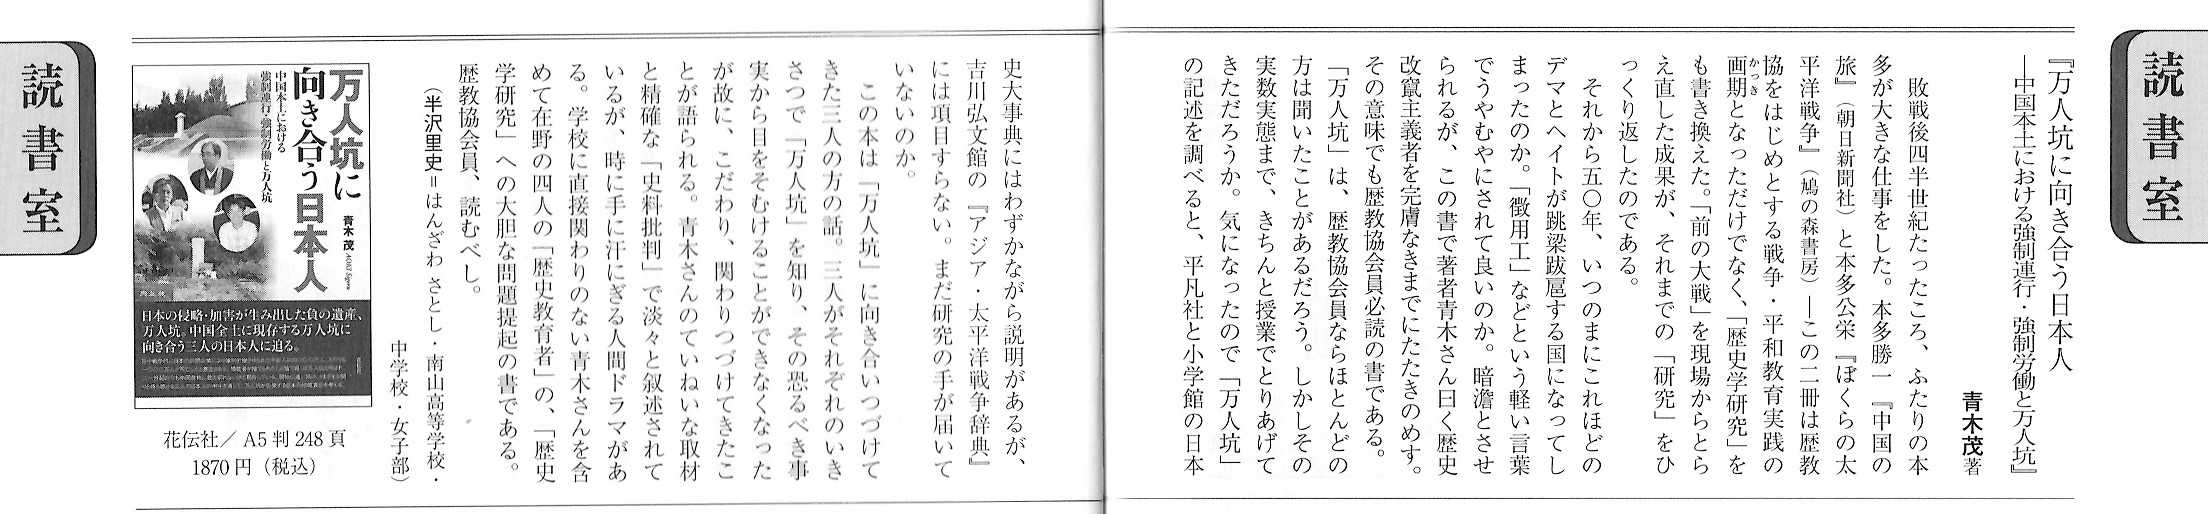 読書室
『万人坑に向き合う日本人
―中国本土における強制連行・強制労働と万人坑』
青木茂 著
敗戦後四半世紀たったころ、ふたりの本
多が大きな仕事をした。本多勝一『中国の
旅』（朝日新聞社）と本多公栄『ぼくらの太
平洋戦争』（鳩の森書房）―この二冊は歴教
協をはじめとする戦争・平和教育実践の
画期となっただけでなく、「歴史学研究」を
かっき
も書き換えた。「前の大戦」を現場からとら
え直した成果が、それまでの「研究」をひ
っくり返したのである。
それから五〇年、いつのまにこれほどの
デマとヘイトが跳梁跋扈する国になってし
まったのか。「徴用工」などという軽い言葉
でうやむやにされて良いのか。暗澹とさせ
られるが、この書で著者青木さん曰く歴史
改竄主義者を完膚なきまでにたたきのめす。
その意味でも歴教協会員必読の書である。
「万人坑」は、歴教協会員ならほとんどの
方は聞いたことがあるだろう。しかしその
実数実態まで、きちんと授業でとりあげて
きただろうか。気になったので「万人坑」
の記述を調べると、平凡社と小学館の日本
史大事典にはわずかながら説明があるが、
吉川弘文館の『アジア・太平洋戦争辞典』
には項目すらない。まだ研究の手が届いて
いないのか。
この本は「万人坑」に向き合いつづけて
きた三人の方の話。三人がそれぞれのいき
さつで「万人坑」を知り、その恐るべき事
実から目をそむけることができなくなった
が故に、こだわり、関わりつづけてきたこ
とが語られる。青木さんのていねいな取材
と精確な「史料批判」で淡々と叙述されて
いるが、時に手に汗にぎる人間ドラマがあ
る。学校に直接関わりのない青木さんを含
めて在野の四人の「歴史教育者」の、「歴史
学研究」への大胆な問題提起の書である。
歴教協会員、読むべし。
（半沢里史＝はんざわ さとし・南山高等学校・
中学校・女子部）
万人坑に
向き合う日本人
中国本土における
強制連行・強制労働と万人坑
青木 茂
日本の侵略・加害が生み出した負の遺産、
万人坑。中国全土に現存する万人坑に
向き合う三人の日本人に迫る。
花伝社／A5判248頁
1870円（税込）
読書室